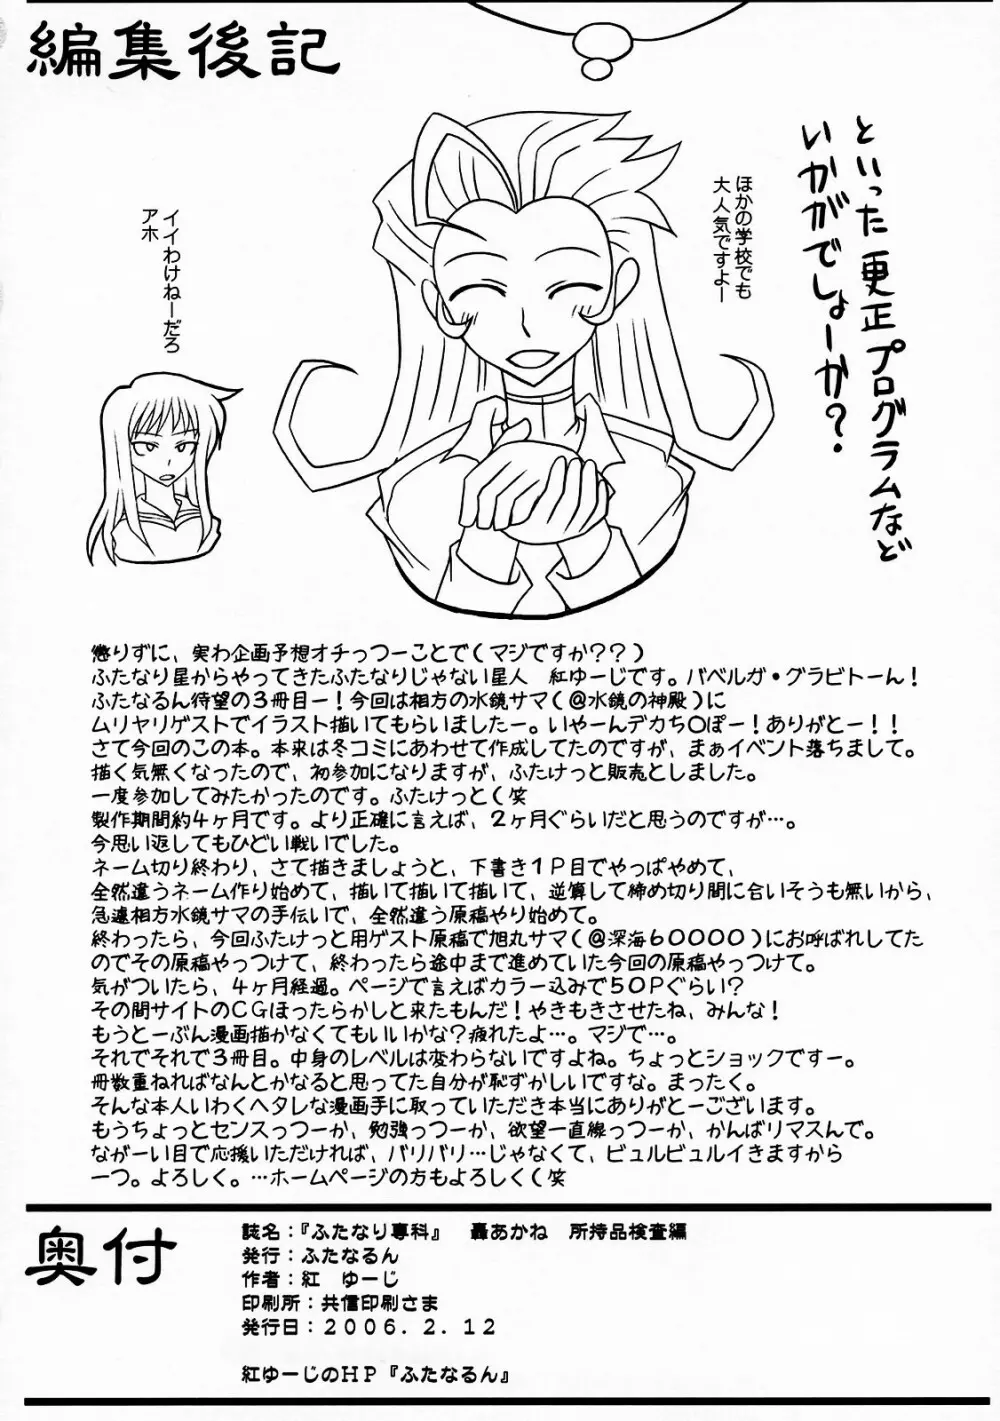 編集後記
といった更正プログラムなど
いかがでしょーか？
ほかの学校でも
大人気ですよー
イイわけねーだろ
アホ
懲りずに、実わ企画予想オチっつーことで（マジですか？？）
ふたなり星からやってきたふたなりじゃない星人　紅ゆーじです。バベルガ・グラビトーん！
ふたなるん待望の３冊目ー！今回は相方の水鏡サマ（@水鏡の神殿）に
ムリヤリゲストでイラスト描いてもらいましたー。いやーんデカち〇ぽー！ありがとー！！
さて今回のこの本。本来は冬コミにあわせて作成してたのですが、まぁイベント落ちまして。
描く気無くなったので、初参加になりますが、ふたけっと販売としました。
一度参加してみたかったのです。ふたけっと（笑
製作期間約４ヶ月です。より正確に言えば、２ヶ月ぐらいだと思うのですが…。
今思い返してもひどい戦いでした。
ネーム切り終わり、さて描きましょうと、下書き１Ｐ目でやっぱやめて、
全然違うネーム作り始めて、描いて描いて描いて、逆算して締め切り間に合いそうも無いから、
急遽相方水鏡サマの手伝いで、全然違う原稿やり始めて。
終わったら、今回ふたけっと用ゲスト原稿で旭丸サマ（@深海６００００）にお呼ばれしてた
のでその原稿やっつけて、終わったら途中まで進めていた今回の原稿やっつけて。
気がついたら、４ヶ月経過。ページで言えばカラー込みで５０Ｐぐらい？
その間サイトのＣＧほったらかしと来たもんだ！やきもきさせたね、みんな！
もうとーぶん漫画描かなくてもいいかな？疲れたよ…。マジで…。
それでそれで３冊目。中身のレベルは変わらないですよね。ちょっとショックですー。
冊数重ねればなんとかなると思ってた自分が恥ずかしいですな。まったく。
そんな本人いわくヘタレな漫画手に取っていただき本当にありがとーございます。
もうちょっとセンスっつーか、勉強っつーか、欲望一直線っつーか、がんばリマスんで。
ながーい目で応援いただければ、バリバリ…じゃなくて、ビュルビュルイきますから
一つ。よろしく。…ホームページの方もよろしく（笑
奥付
誌名：『ふたなり専科』　轟あかね　所持品検査編
発行：ふたなるん
作者：紅　ゆーじ
印刷所：共信印刷さま
発行日：２００６．２．１２
紅ゆーじのＨＰ『ふたなるん』